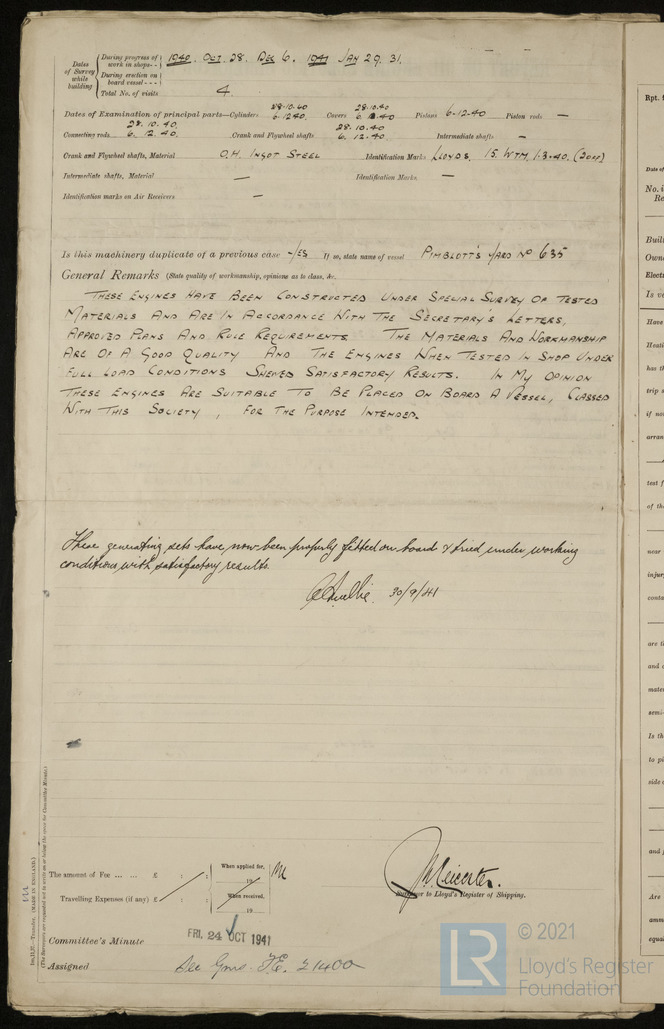 Dates of Survey while building
During progress of work in shops - - 1940. Oct. 28. Dec 6. 1941 Jan 29. 31.
During erection on board vessel - - -
Total No. of visits 4.
Dates of Examination of principal parts—Cylinders 28.10.40 6.12.40. Covers 28.10.40 6.12.40 Pistons 6.12.40 Piston rods —
Connecting rods 28.10.40. 6.12.40. Crank and Flywheel shafts 28.10.40 6.12.40. Intermediate shafts —
Crank and Flywheel shafts, Material O.H. Ingot Steel Identification Marks Lloyds. 15. WTM 1.3.40.
Intermediate shafts, Material — Identification Marks —
Identification marks on Air Receivers —
Is this machinery duplicate of a previous case Yes If so, state name of vessel Pimblott's Yard No 635
General Remarks (State quality of workmanship, opinions as to class, &c.
These Engines Have Been Constructed Under Special Survey Of Tested
Materials And Are In Accordance With The Secretary's Letters,
Approved Plans And Rule Requirements The Materials And Workmanship
Are Of A Good Quality And The Engines When Tested In Shop Under
Full Load Conditions Shewed Satisfactory Results. In My Opinion
These Engines Are Suitable To Be Placed On Board A Vessel, Classed
With This Society, For The Purpose Intended.
These generating sets have now been properly fitted on board & tried under working
conditions with satisfactory results.
30/9/41
The amount of Fee ... ... £ : :
When applied for,
19
Travelling Expenses (if any) £ : :
When received,
19
Surveyor to Lloyd's Register of Shipping.
Committee's Minute FRI. 24 OCT 1941
Assigned See F.E.
(MADE IN ENGLAND.)
(The Surveyors are requested not to write on or below the space for Committee's Minute.)
Rpt.
Date of
No. i
Re
Buil
Own
Elect
Is ve
Have
Heati
has th
trip s
if no
arran
test f
of the
near
injur
conta
are th
and c
mate
semi-
Is th
to pi
side c
and f
Are
amm
equa
LR © 2021
Lloyd's Register
Foundation